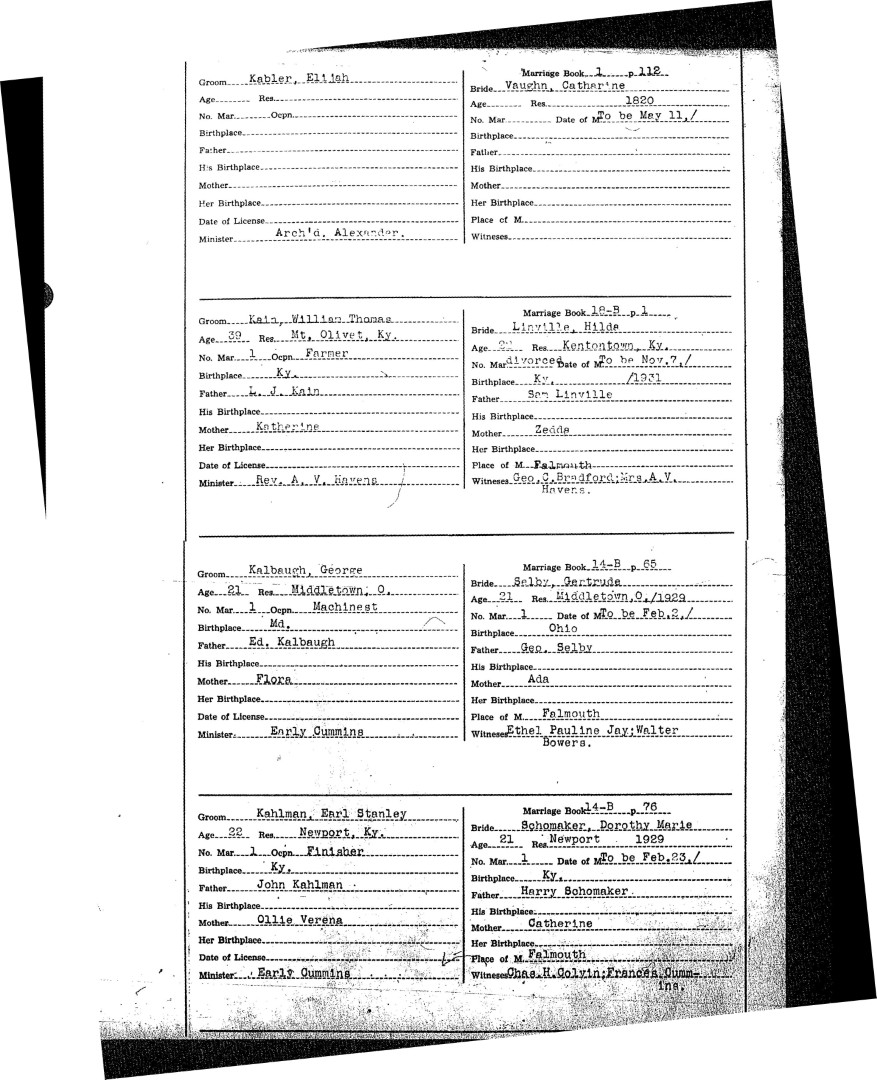 Groom Kabler, Elijah
Age Res.
No. Mar. Ocpn.
Birthplace
Father
His Birthplace
Mother
Her Birthplace
Date of License
Minister Arch'd. Alexander.
Marriage Book 1 p. 112
Bride Vaughn, Catharine
Age Res. 1820
No. Mar. Date of M. To be May 11,/
Birthplace
Father
His Birthplace
Mother
Her Birthplace
Place of M.
Witnesses
Groom Kain, William Thomas
Age 39 Res. Mt. Olivet, Ky.
No. Mar. 1 Ocpn. Farmer
Birthplace Ky.
Father L. J. Kain
His Birthplace
Mother Katherine
Her Birthplace
Date of License
Minister Rev. A. V. Havens
Marriage Book 18-B p. 1
Bride Linville, Hilda
Age Res. Kentontown, Ky.
No. Mar. divorced Date of M. To be Nov.7,/
Birthplace Ky. /1931
Father Sam Linville
His Birthplace
Mother Zedda
Her Birthplace
Place of M. Falmouth
Witnesses Geo.C.Bradford;Mrs.A.V.
Havens.
Groom Kalbaugh, George
Age 21 Res. Middletown, O.
No. Mar. 1 Ocpn. Machinest
Birthplace Md.
Father Ed. Kalbaugh
His Birthplace
Mother Flora
Her Birthplace
Date of License
Minister Early Cummins
Marriage Book 14-B p. 65
Bride Selby, Gertrude
Age 21 Res. Middletown,O./1929
No. Mar. 1 Date of M. To be Feb.2,/
Birthplace Ohio
Father Geo. Selby
His Birthplace
Mother Ada
Her Birthplace
Place of M. Falmouth
Witnesses Ethel Pauline Jay;Walter
Bowers.
Groom Kahlman, Earl Stanley
Age 22 Res. Newport, Ky.
No. Mar. 1 Ocpn. Finisher
Birthplace Ky.
Father John Kahlman
His Birthplace
Mother Ollie Verena
Her Birthplace
Date of License
Minister Early Cummins
Marriage Book 14-B p. 76
Bride Schomaker, Dorothy Marie
Age 21 Res. Newport 1929
No. Mar. 1 Date of M. To be Feb.23,/
Birthplace Ky.
Father Harry Schomaker.
His Birthplace
Mother Catherine
Her Birthplace
Place of M. Falmouth
Witnesses Chas.H.Colvin;Frances Cumm-
ins.